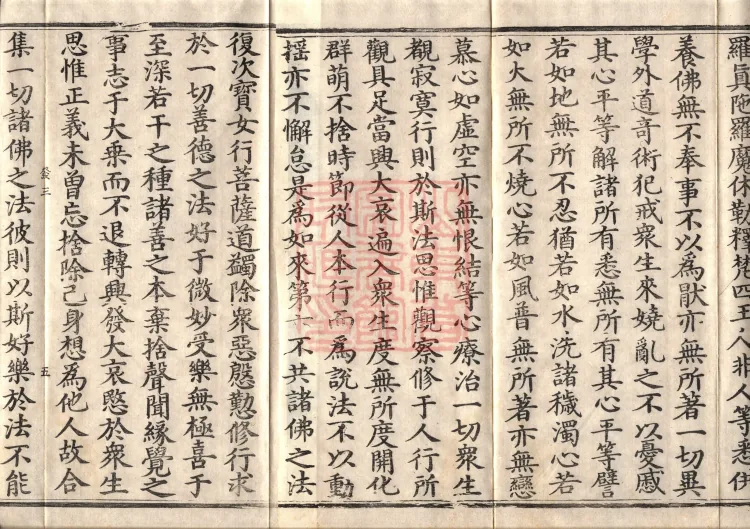 羅真陀羅摩休勒釋梵四王人非人等悉供
養佛無不奉事不以為猒亦無所著一切異
學外道奇術犯戒衆生來嬈亂之不以憂慼
其心平等解諸所有悉無所有其心平等譬
若如地無所不忍猶若如水洗諸穢濁心若
如火無所不燒心若如風普無所著亦無戀
慕心如虛空亦無恨結等心療治一切衆生
覩寂寞行則於斯法思惟觀察修于人行所
觀具足當興大哀遍入衆生度無所度開化
群萌不捨時節從人本行而為說法不以動
揺亦不懈怠是為如來第十不共諸佛之法
復次寶女行菩薩道蠲除衆惡慇懃修行求
於一切善德之法好于微妙受樂無極喜于
至深若干之種諸善之本棄捨聲聞緣覺之
事志于大乘而不退轉興發大哀愍於衆生
思惟正義未曾忘捨除己身想為他人故合
集一切諸佛之法彼則以斯好樂於法不能
五